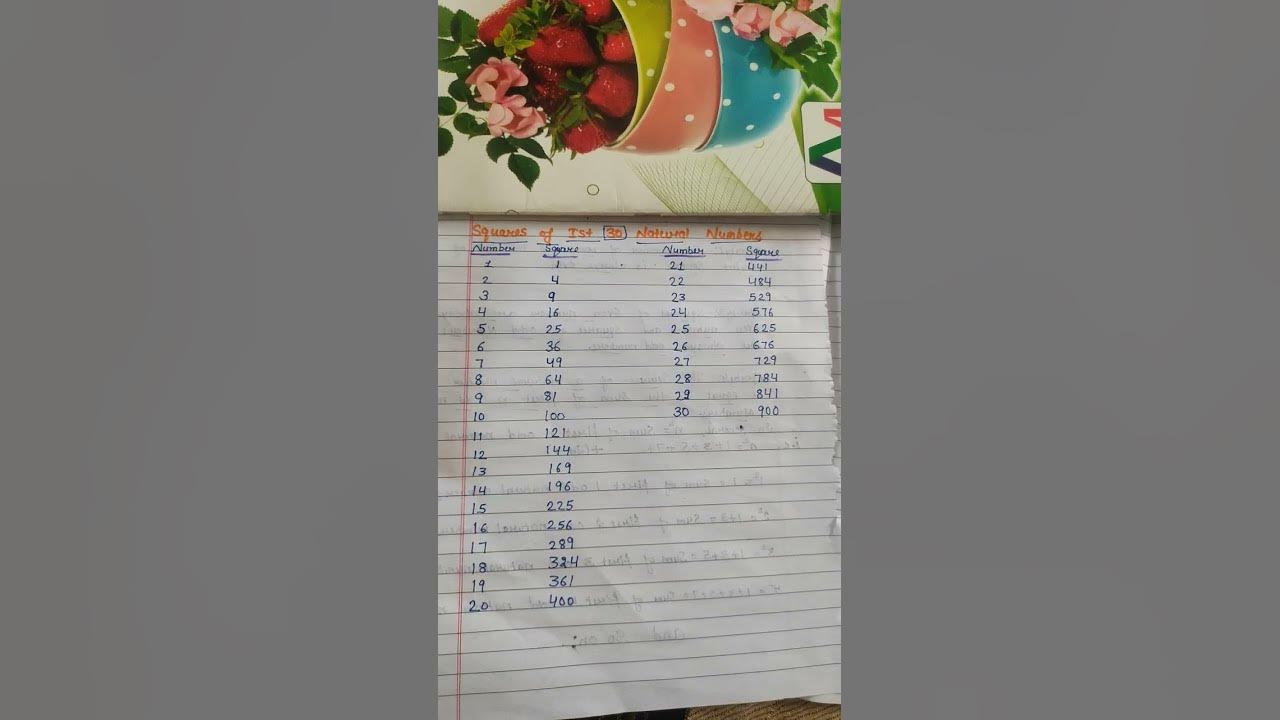 Squares of Ist 30 Natural Numbers
Number Square Number Square
1 1 21 441
2 4 22 484
3 9 23 529
4 16 24 576
5 25 25 625
6 36 26 676
7 49 27 729
8 64 28 784
9 81 29 841
10 100 30 900
11 121
12 144
13 169
14 196
15 225
16 256
17 289
18 324
19 361
20 400